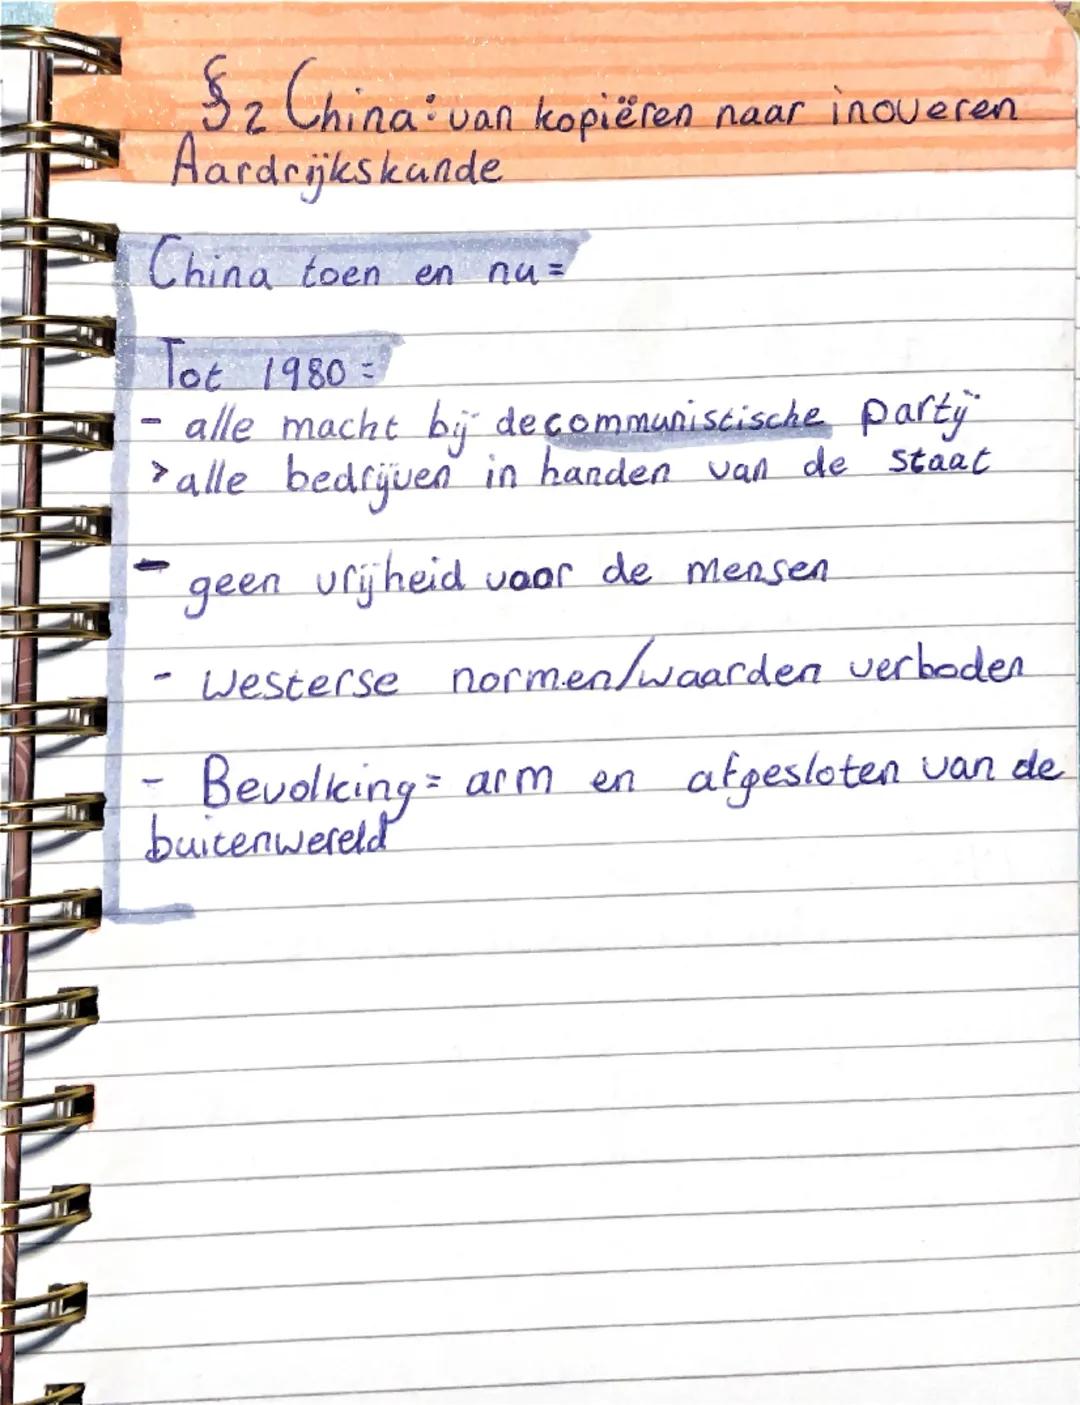 §2 China: van kopiëren naar inoveren
Aardrijkskunde
China toen en nu =
Tot 1980 =
- alle macht bij de communistische partij
> alle bedrijven in handen van de staat
- geen vrijheid voor de mensen
- Westerse normen/waarden verboden
- Bevolking = arm en afgesloten van de
buitenwereld